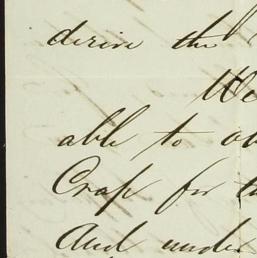 derive the
We
able to
Crop for
And under